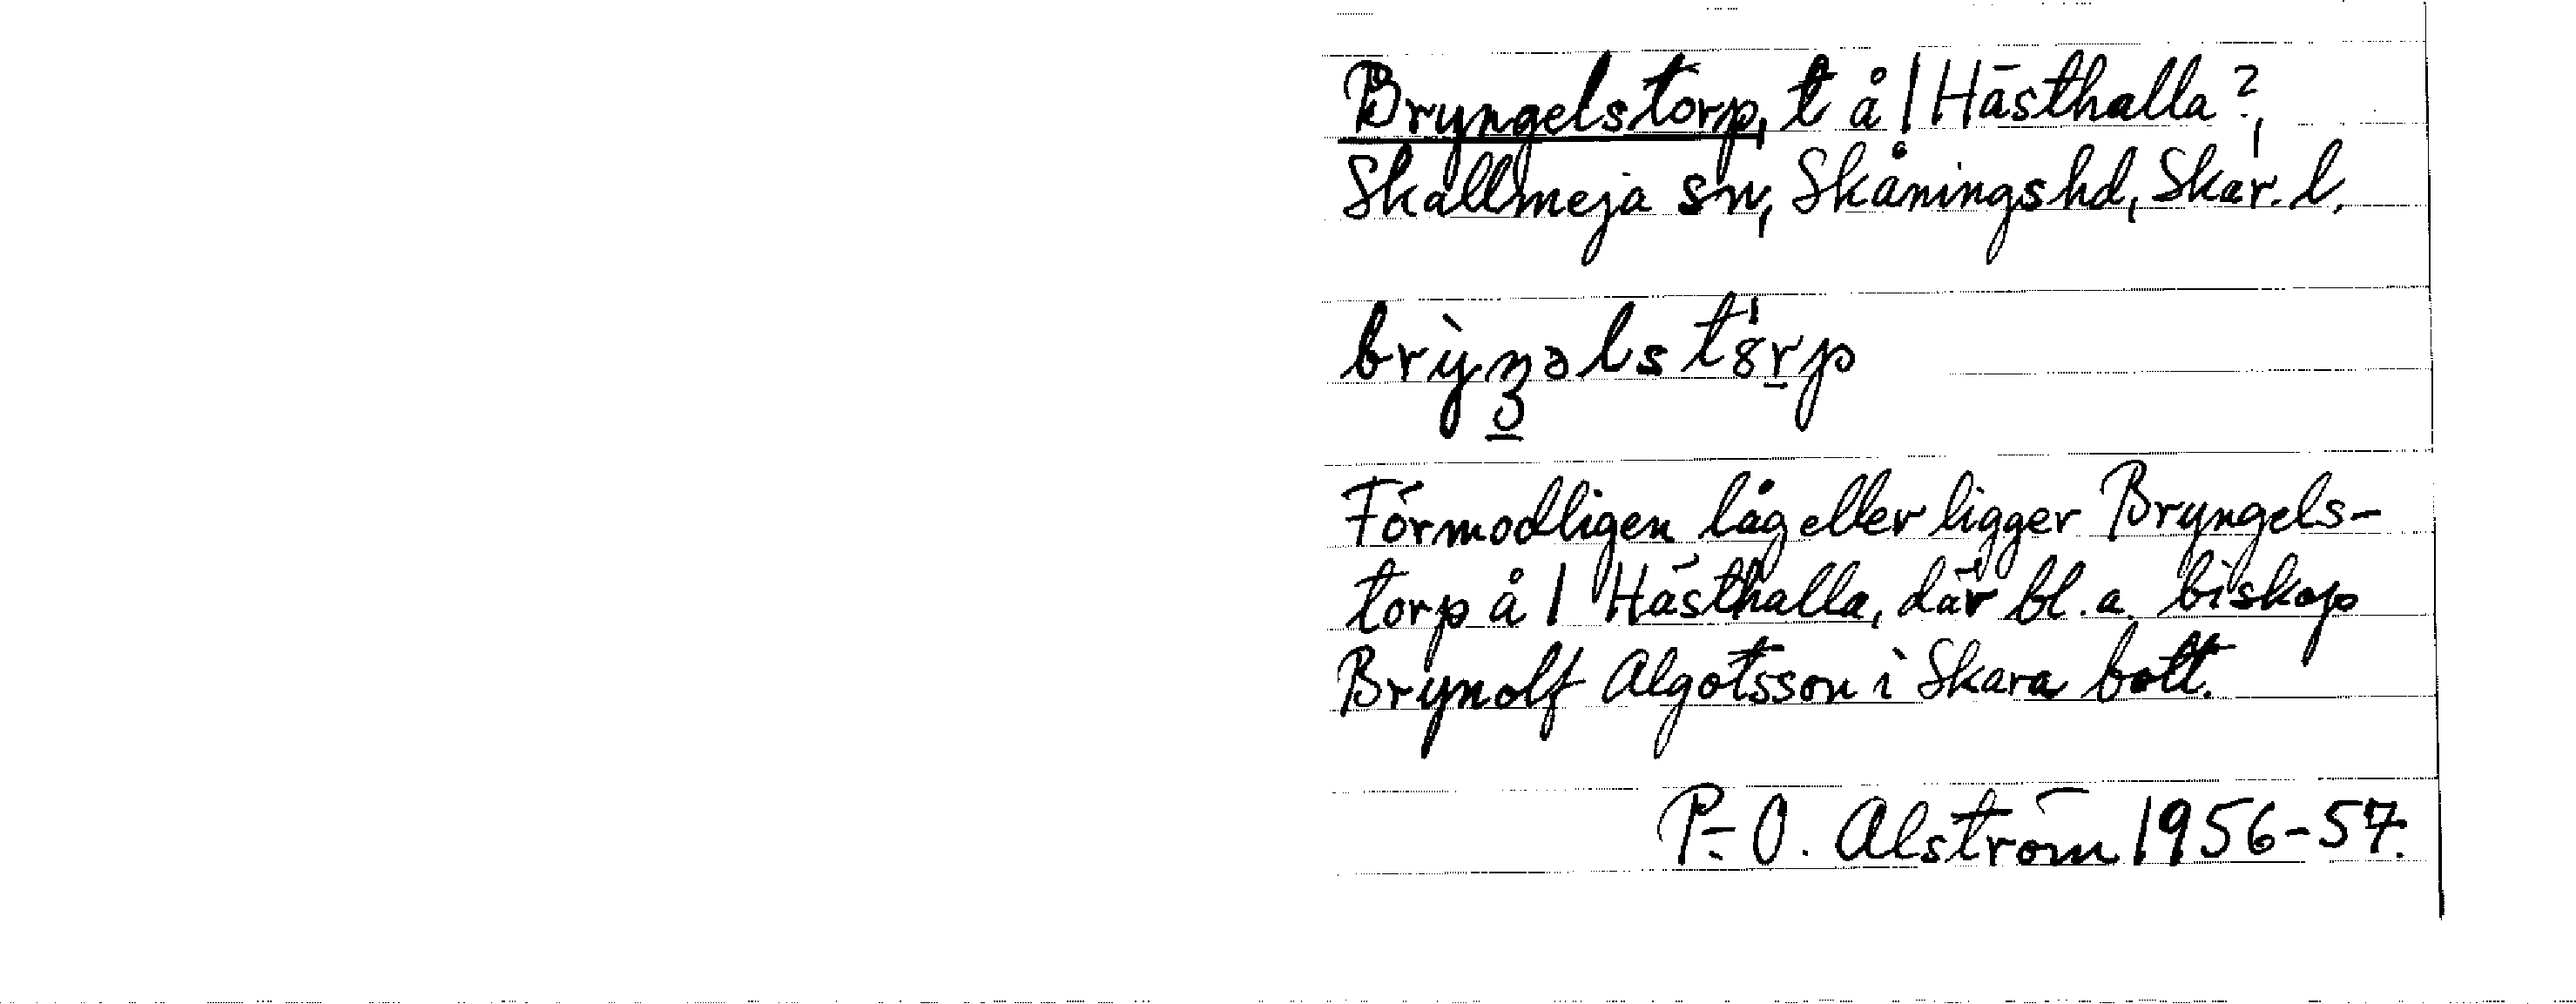 Bryngelstorp, t å 1 Hästhalla?,
Skallmeja sn, Skånings hd, Skar. l.
brỳŋəlstȯrp
Förmodligen låg eller ligger Bryngels-
torp å 1 Hästhalla, där bl. a. biskop
Brynolf Algotsson i Skara bott.
P.-O. Alström 1956-57.